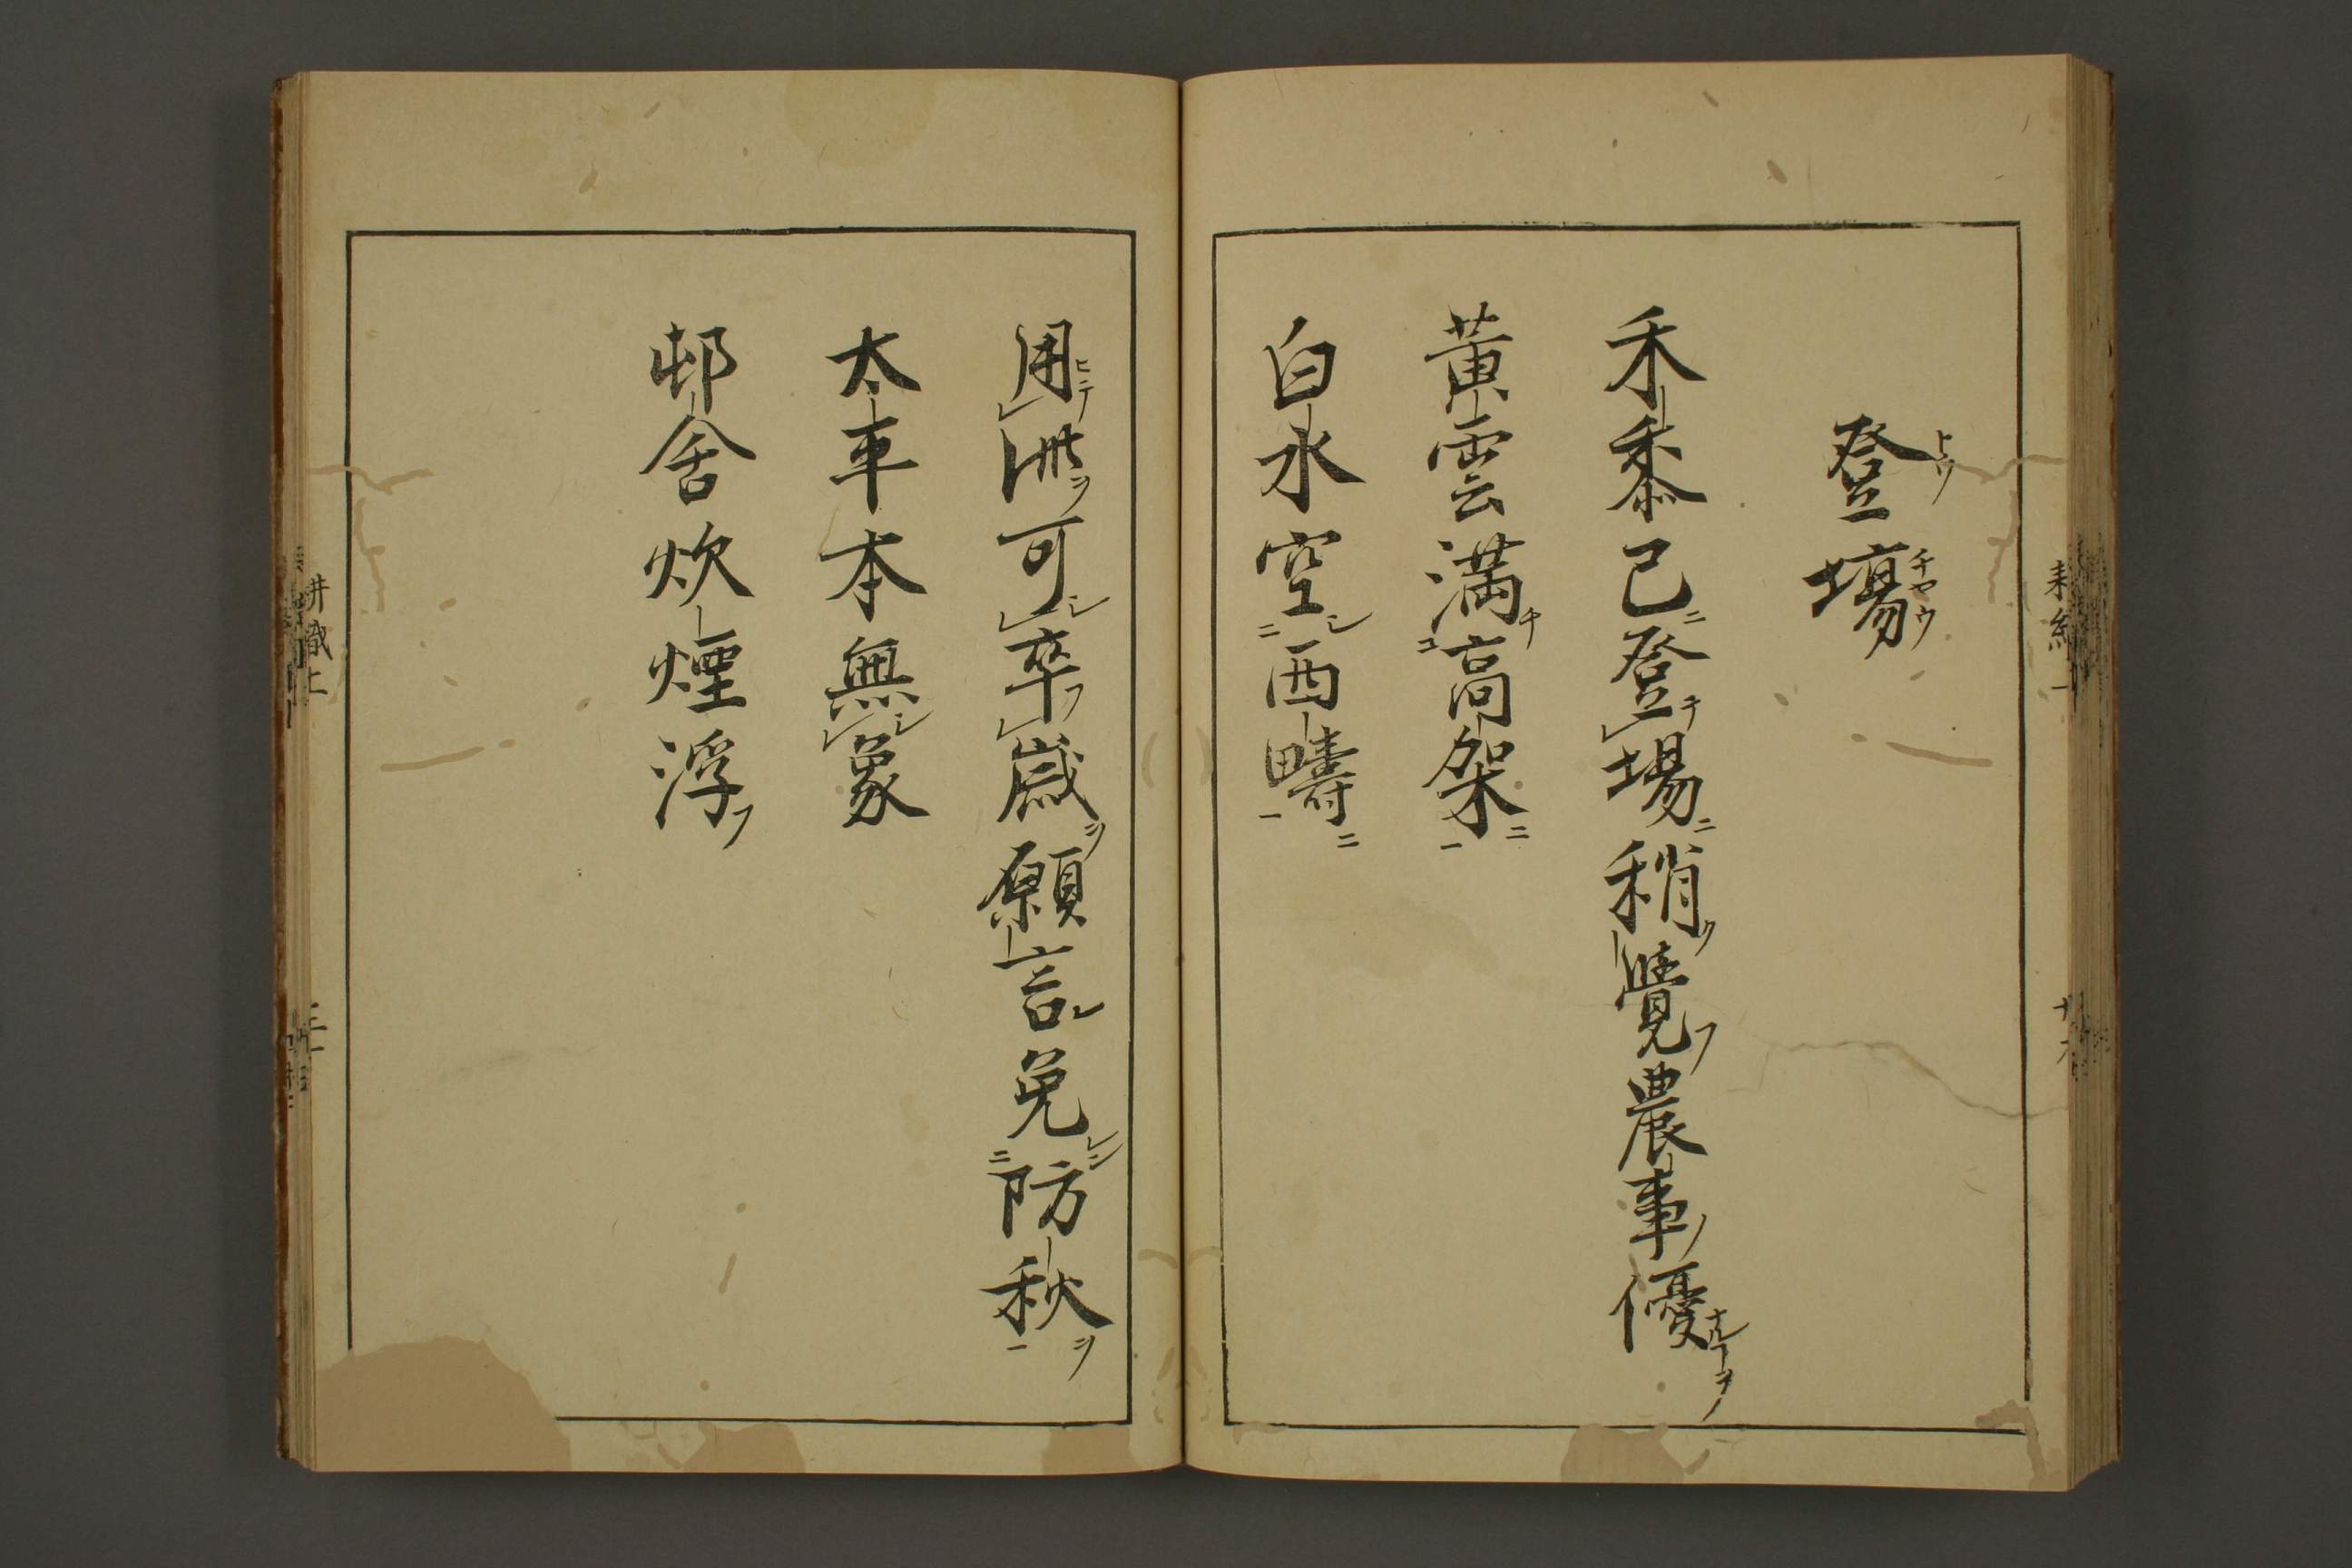 登場
禾黍已登場稍覺農事優
黄雲満高架
白水空西疇
用此可卒歳願言免防秋
太平本無象
邨舍炊煙浮
耕織上